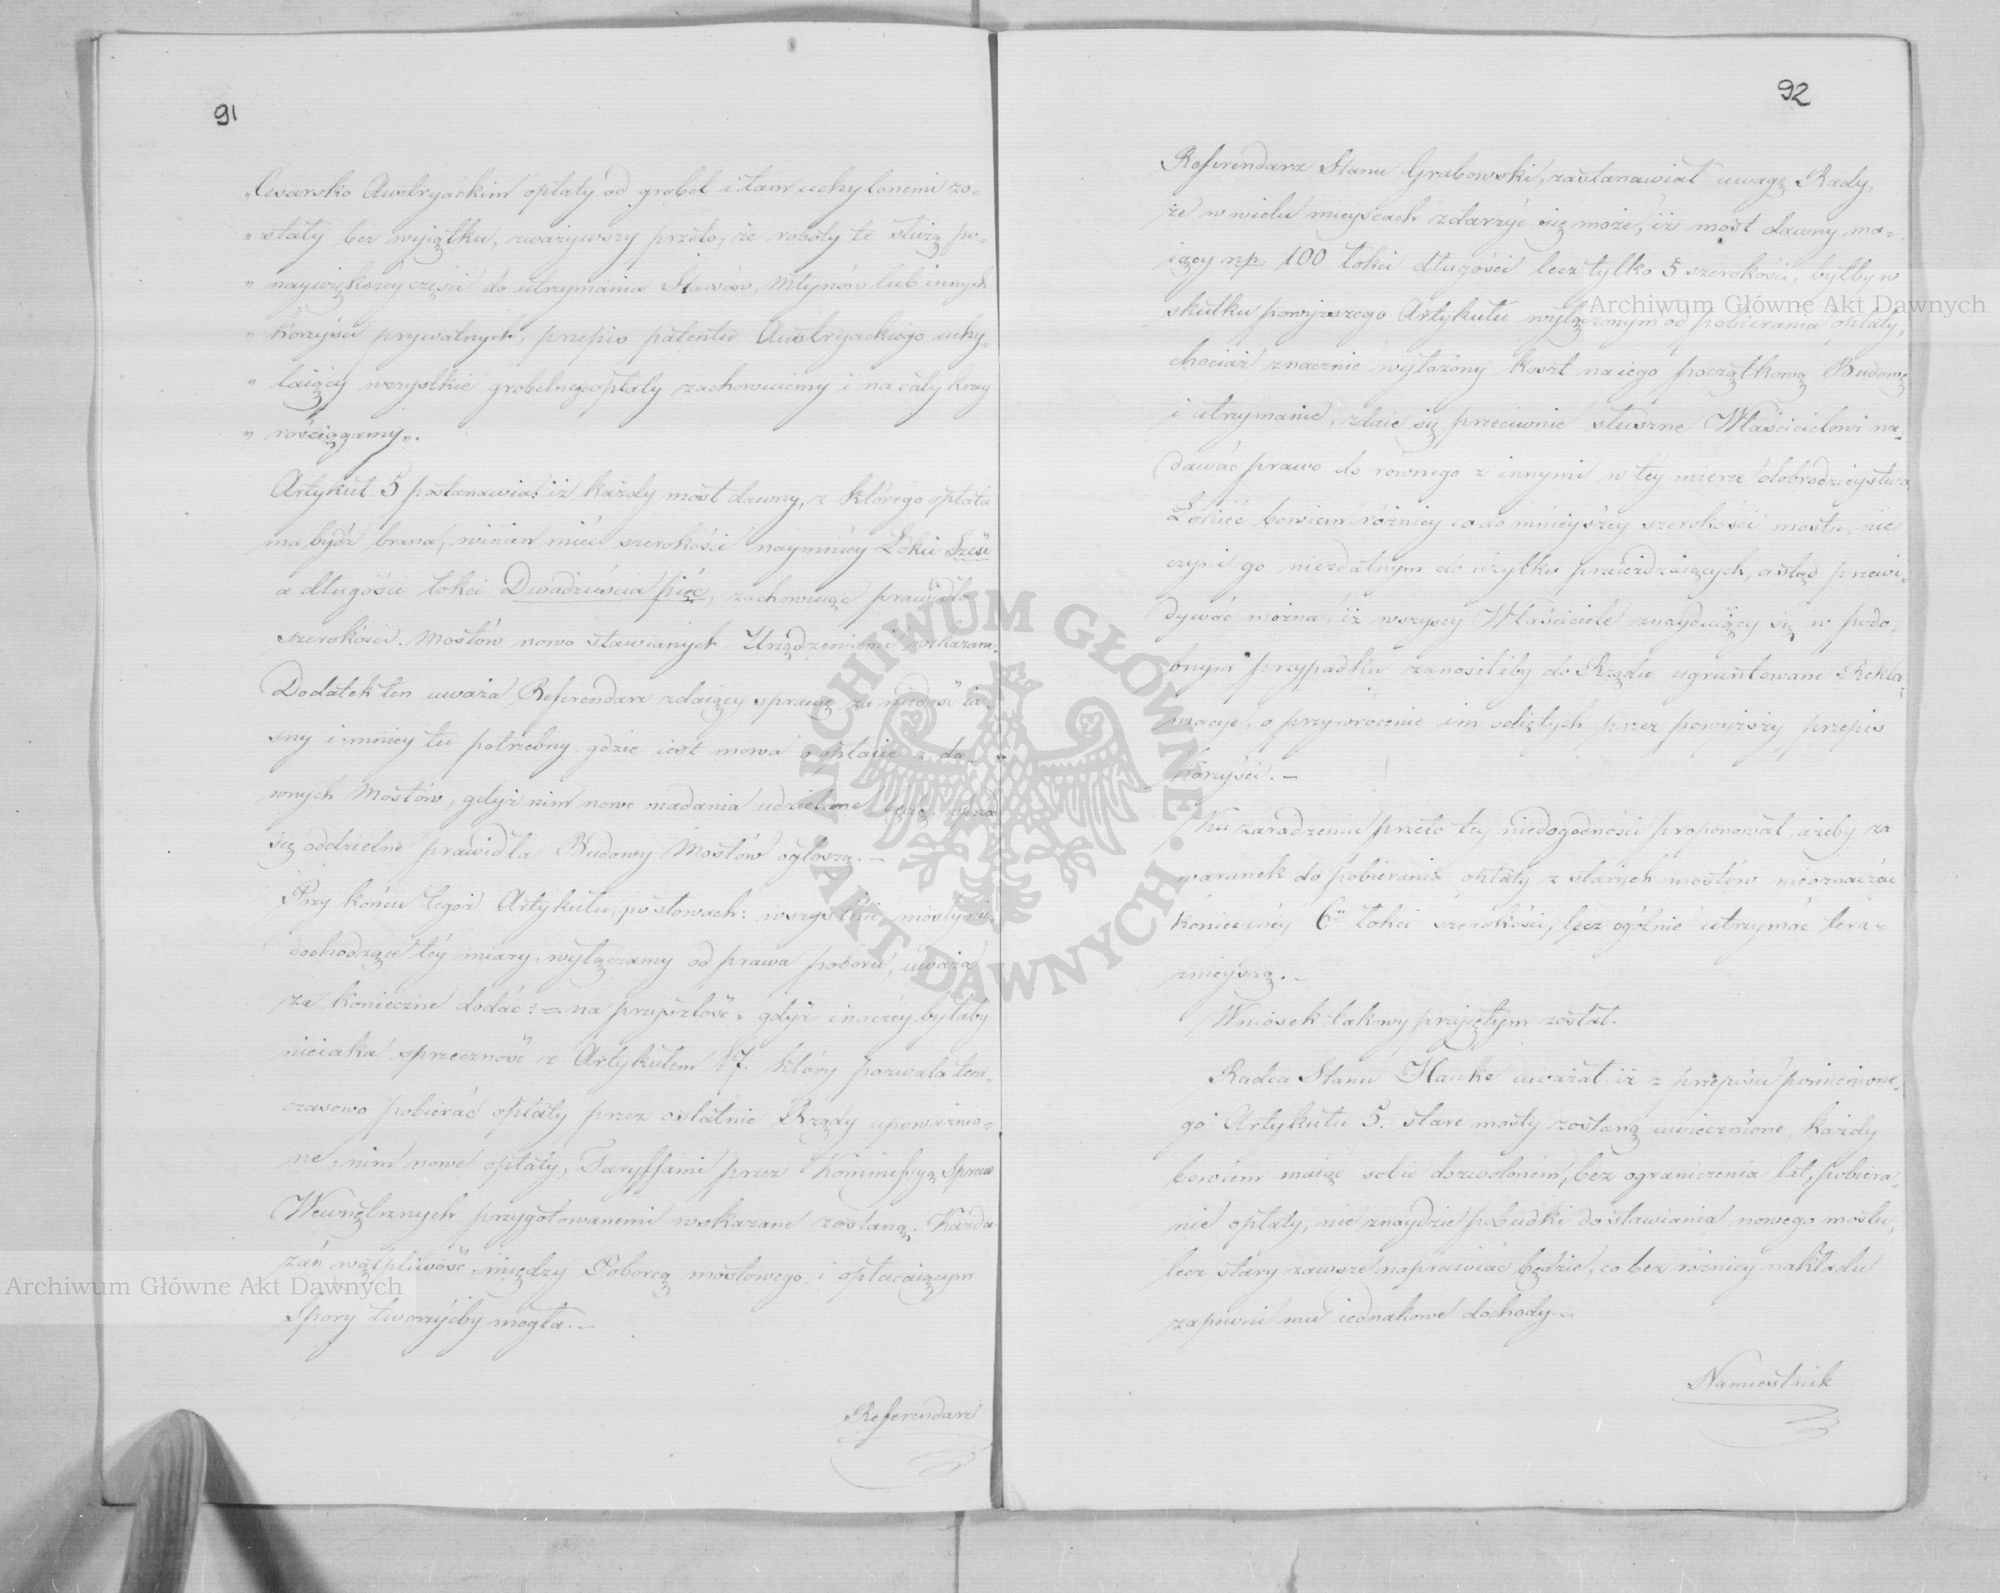 91
„Cesarsko Austryackim opłaty od grobel i tam uchylonemi zo-
„ stały bez wyiątku, zważywszy przeto, że roboty te służą po-
„ naywiększey części do utrzymania Stawów, Młynów lub innych
„ korzyści prywatnych, przepis patentu Austryackiego uchy-
„ laiący wszystkie grobelnego opłaty zachowuiemy i na cały kray
„ rościągamy„.
Artykuł 5 postanawia: iż każdy most dawny, z którego opłata
ma bydź brana, winien mieć szerokości naymniey Łokci Sześć
a długości łokci Dwadzieścia pięć, zachowując prawidła
szerokości Mostów nowo stawianych Urządzeniami wskazane.
Dodatek ten uważa Referendarz zdaiący sprawę za niedość ia-
sny i mniey tu potrzebny gdzie iest mowa o opłacie z da-
wnych Mostów, gdyż nim nowe nadania udzielane będą, wprzód
się oddzielne prawidła Budowy Mostów ogłoszą. —
Przy końcu tegoż Artykułu, po słowach: wszystkie mosty nie-
dochodzące téy miary, wyłączamy od prawa poboru, uważa
za konieczne dodać: = na przyszłość = gdyż inaczéy byłaby
nieiaka sprzeczność z Artykułem 17. który pozwala tym-
czasowo pobierać opłaty przez ostatnie Rządy upoważnio-
ne, nim nowe opłaty, Taryffami przez Kommissyą Spraw
Wewnętrznych przygotowanemi wskazane zostaną. Każda
zaś wątpliwość, między Poborcą mostowego i opłacaiącym
Spory tworzyćby mogła. —
Referendarz
92
Referendarz Stanu Grabowski, zastanawiał uwagę Rady,
że w wielu mieyscach zdarzyć się może, iż most dawny, ma-
iący np. 100 łokci długości lecz tylko 5 szerokości, byłby w
skutku powyższego Artykułu wyłączonym od pobierania opłaty,
chociaż znacznie wyłożony koszt na iego początkową Budowę
i utrzymanie, zdaie się przeciwnie słuszne Właścicielowi na-
dawać prawo do równego z innymi w tey mierze dobrodzieystwa.
Łokieć bowiem różnicy co do mnieyszéy szerokości mostu, nie
czyni go niezdatnym do użytku przeieżdzaiących, a stąd przewi-
dywać można iż wszyscy Właściciele znayduiący się w podo-
bnym przypadku zanosiliby do Rządu ugruntowane Rekla-
macyie, o przywrócenie im odiętych przez powyższy przepis
korzyści. —
Ku zaradzeniu przeto tey niedogodności proponował, ażeby za
warunek do pobierania opłaty z starych mostów nieoznaczać
koniecznéy 6ciu łokci szerokości, lecz ogólnie utrzymać tera-
znieyszą. —
Wniosek takowy przyiętym został.
Radca Stanu Hauke uważał iż z przepisu pomienione-
go Artykułu 5. stare mosty zostaną uwiecznione, każdy
bowiem maiąc sobie dozwolonem, bez ograniczenia lat, pobiera-
nie opłaty, nie znaydzie pobudki do stawiania nowego mostu,
lecz stary zawsze naprawiać będzie, co bez różnicy nakładu
zapewni mu iednakowe dochody. —
Namiestnik
Archiwum Główne Akt Dawnych
Archiwum Główne Akt Dawnych
ARCHIWUM GŁÓWNE • AKT DAWNYCH •